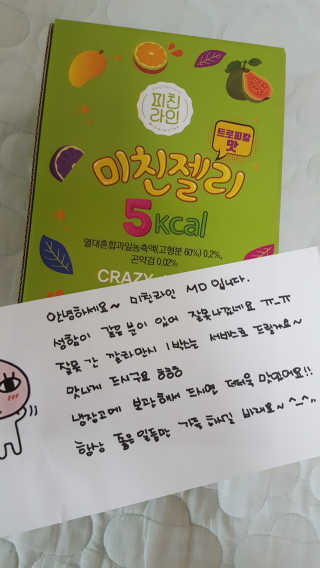 피친
라인
트로피컬
맛
미친젤리
5Kcal
열대혼합과일농축액(고형분 60%) 0.2%,
곤약검 0.02%
CRAZY
안녕하세요~ 피친라인 MD입니다.
성함이 같은 분이 있어 잘못나갔네요 ㅠ_ㅠ
잘못 간 깔라만시 1박스는 서비스로 드릴게요~
맛나게 드시구요 ㅎㅎㅎ
냉장고에 보관해서 드시면 더더욱 맛있어요!!
항상 좋은 일들만 가득 하길 바래요~ ^_^